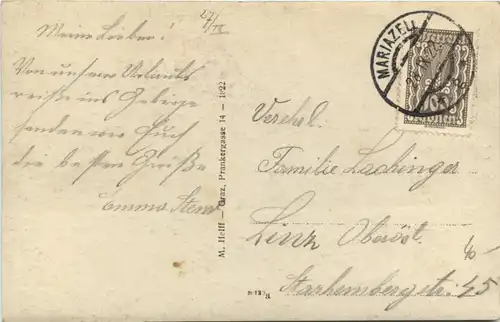 27/IV
Meine Lieben!
Von unserer Urlaubs
reise ins Gebirge
senden wir Euch
die besten Grüße
Emma
M. Helff — Graz, Prankergasse 14 — 1922
MARIAZELL
Verehel.
Familie Lachinger
Linz Oberöst.
Starhembergstr. 45